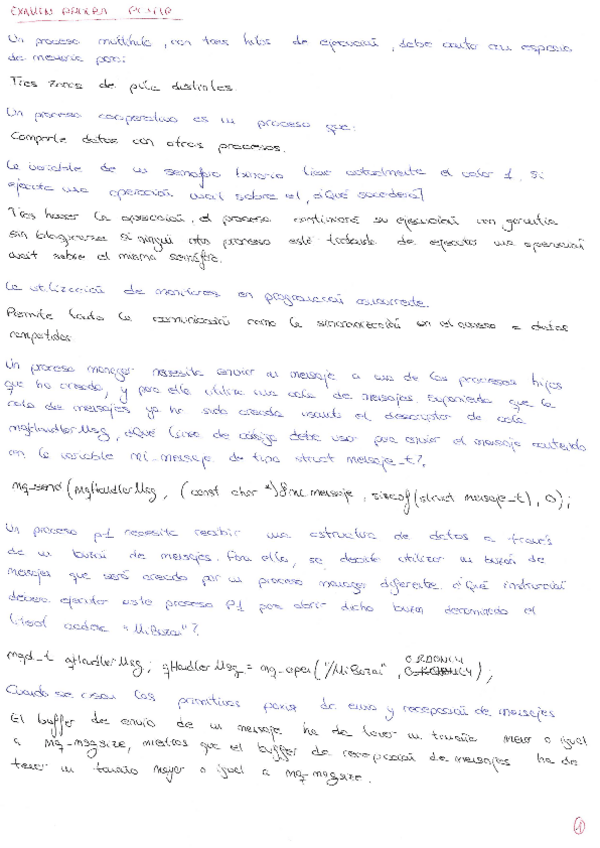 EXAMEN PRUEBA POSIX
Un proceso multihilo, con tres hilos de ejecución, debe contar con espacio
de memoria para:
Tres zonas de pila distintas.
Un proceso cooperativo es un proceso que:
Comparte datos con otros procesos.
La variable de un semáforo binario tiene actualmente el valor 1. Si
ejecuta una operación wait sobre el, ¿Qué sucederá?
Tras hacer la operación, el proceso continuará su ejecución con garantía
sin bloquearse si ningún otro proceso está tratando de ejecutar una operación
wait sobre el mismo semáforo.
La utilización de monitores en programación concurrente.
Permite tanto la comunicación como la sincronización en el acceso a datos
compartidos
Un proceso manager necesita enviar un mensaje a uno de los procesos hijos
que ha creado, y para ello utiliza una cola de mensajes. Suponiendo que la
cola de mensajes ya ha sido creada usando el descriptor de cola
mqHandlerMsg, ¿Qué línea de código debe usar para enviar el mensaje contenido
en la variable mi_mensaje de tipo struct mensaje_t?.
mq_send (mqHandlerMsg, (const char *)&mi mensaje, sizeof(struct mensaje_t), 0);
Un proceso p1 necesita recibir una estructura de datos a través
de un buzón de mensajes. Para ello, se decide utilizar un buzón de
mensajes que será creado por un proceso manager diferente. ¿Qué instrucción
deberá ejecutar este proceso P1 para abrir dicho buzón denominado el
"MiBuzon"?
mqd_t qHandlerMsg; qHandlerMsg = mq_open("/MiBuzon", O_RDONLY);
Cuando se usan las primitivas POSIX de envío y recepción de mensajes
El buffer de envío de un mensaje ha de tener un tamaño menor o igual
a mq_msgsize, mientras que el buffer de recepción de mensajes ha de
tener un tamaño mayor o igual a mq_msgsize.
1